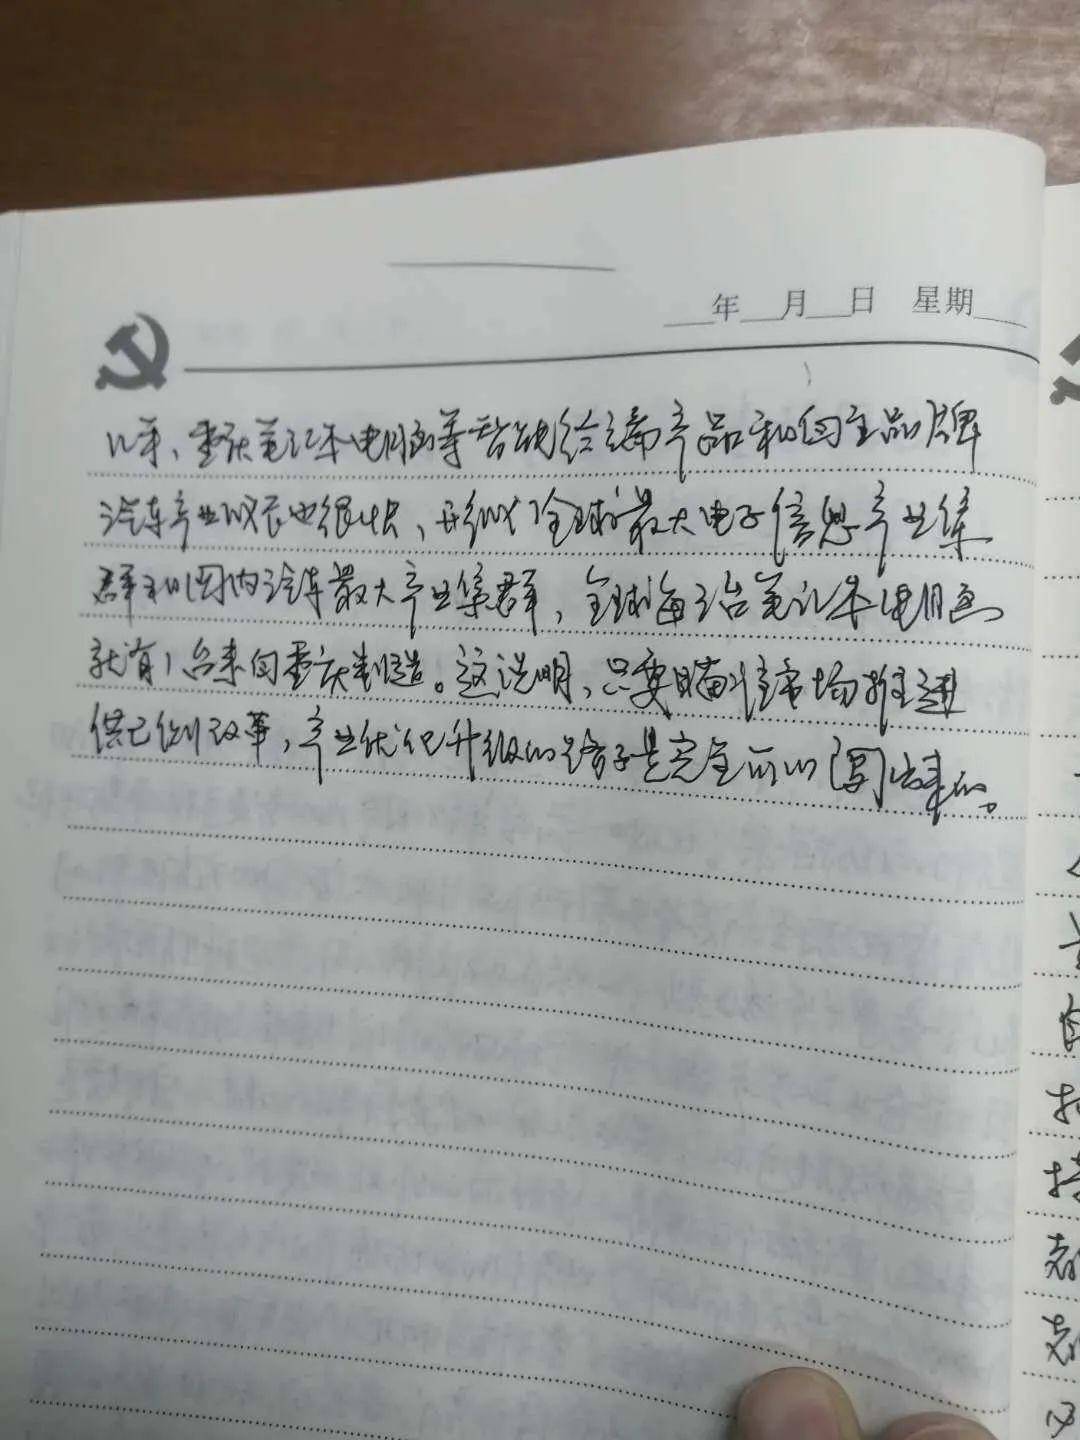 年 月 日 星期
几年,重庆笔记本电脑等智能终端产品和自主品牌
汽车产业成长也很快,形成全球最大电子信息产业集
群和国内汽车最大产业集群,全球每3台笔记本电脑
就有1台来自重庆制造。这说明,只要瞄准市场推进
供给侧改革,产业优化升级的路子是完全可以闯出来的。